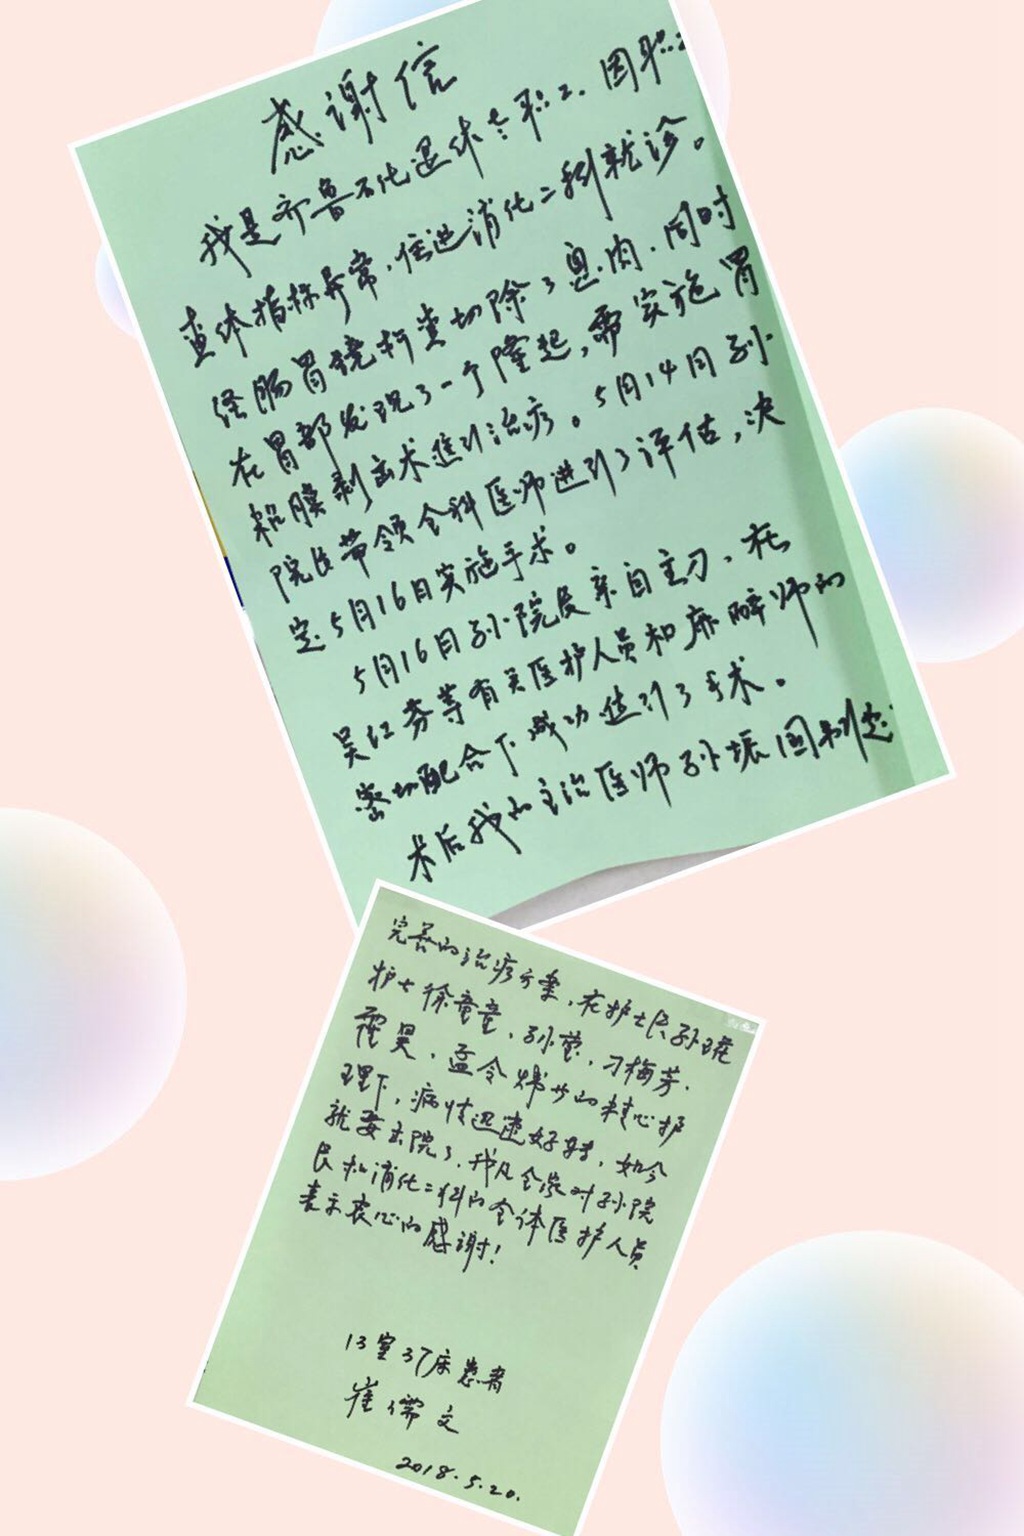 感谢信
我是齐鲁石化退休老职工. 因职工
查体指标异常, 住进消化二科就诊。
经肠胃镜检查切除了息肉. 同时
在胃部发现了一个隆起, 需实施胃
粘膜剥离术进行治疗。5月14月孙
院长带领全科医师进行了评估, 决
定5月16日实施手术。
5月16日孙院长亲自主刀. 在
吴红芬等有关医护人员和麻醉师的
密切配合下成功进行了手术。
术后我的主治医师孙振国制定
完善的治疗方案, 在护士长孙
护士徐童童. 孙莹. 刁梅芳.
霍昊. 孟令娣等的精心护
理下, 病情迅速好转, 如今
就要出院了. 我及全家对孙院
长和消化二科的全体医护人员
表示衷心的感谢!
13室37床患者
崔儒文
2018.5.20.